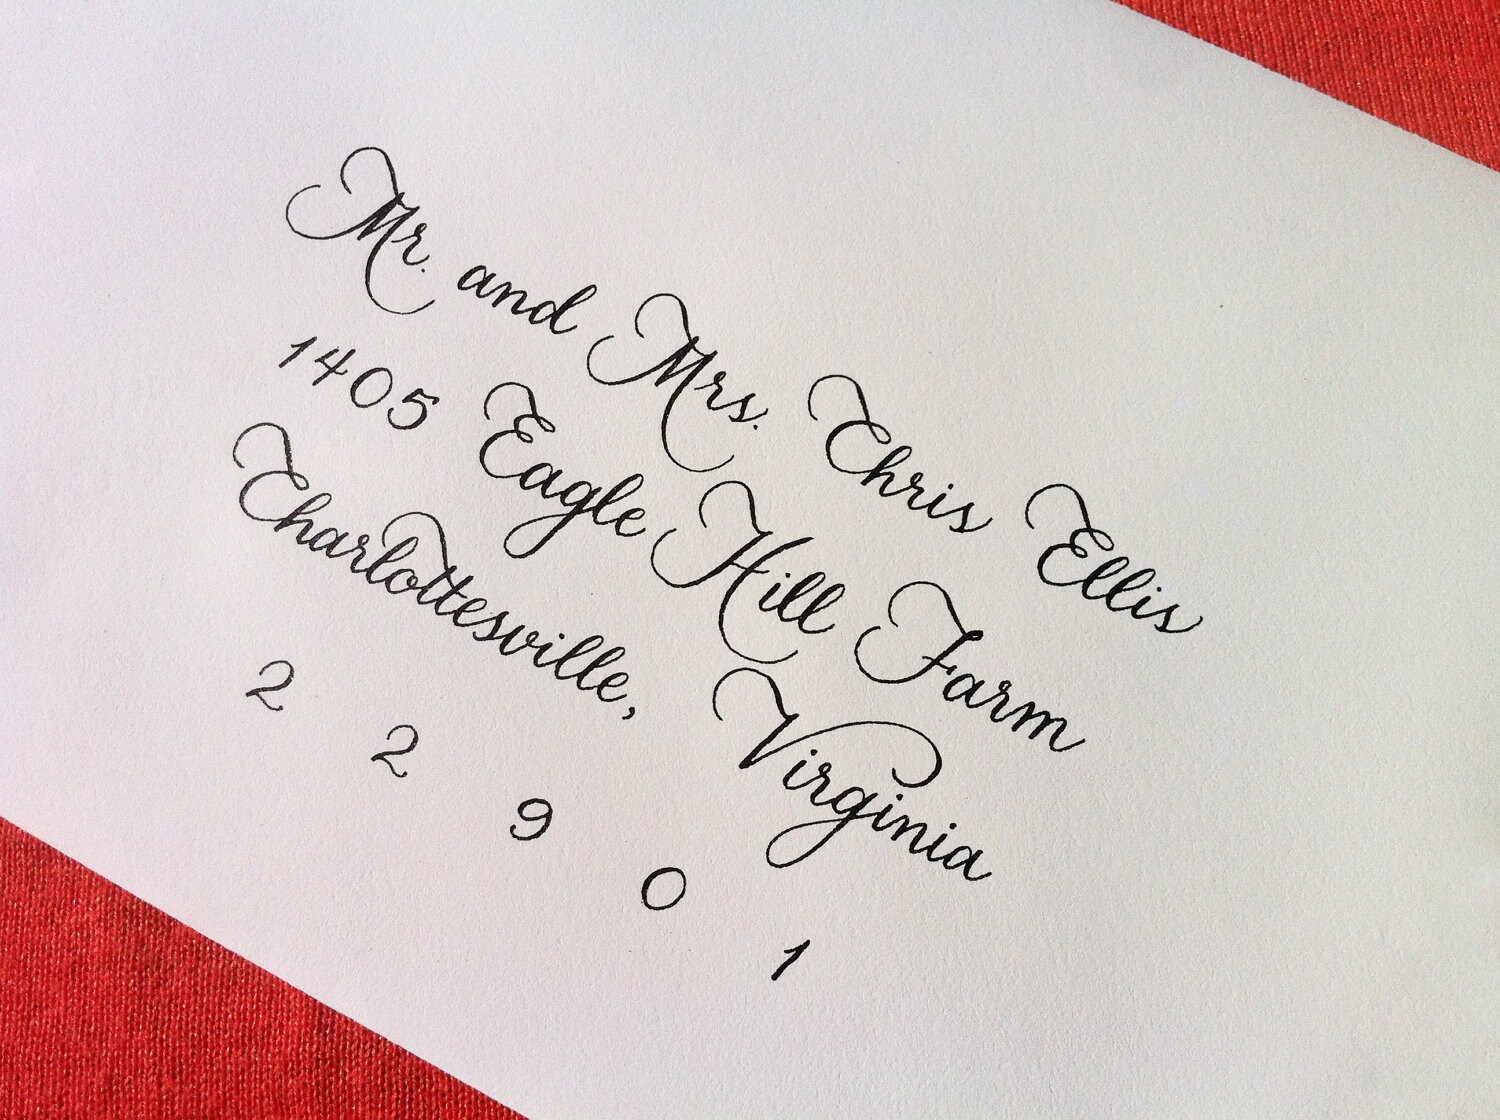 Mr. and Mrs. Chris Ellis
1405 Eagle Hill Farm
Charlottesville, Virginia
2 2 9 0 1